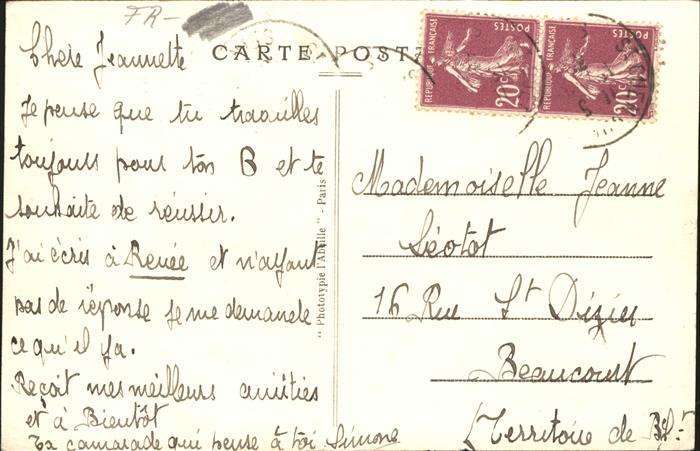 FR-
CARTE POSTA
REPUBLIQUE FRANÇAISE
POSTES
20c
REPUBLIQUE FRANÇAISE
POSTES
20c
Chère Jeannette
Je pense que tu travailles
toujours pour ton B et te
souhaite de réussir.
J'ai écris à Renée et n'ayant
pas de réponse je me demande
ce qu'il y a.
Reçoit mes meilleurs amitiés
et à Bientôt
Ta camarade qui pense à toi Simone
" Phototypie l'Abeille " - Paris
Mademoiselle Jeanne
Séotot
16 Rue St Dizier
Beaucourt
(Territoire de Bf.t